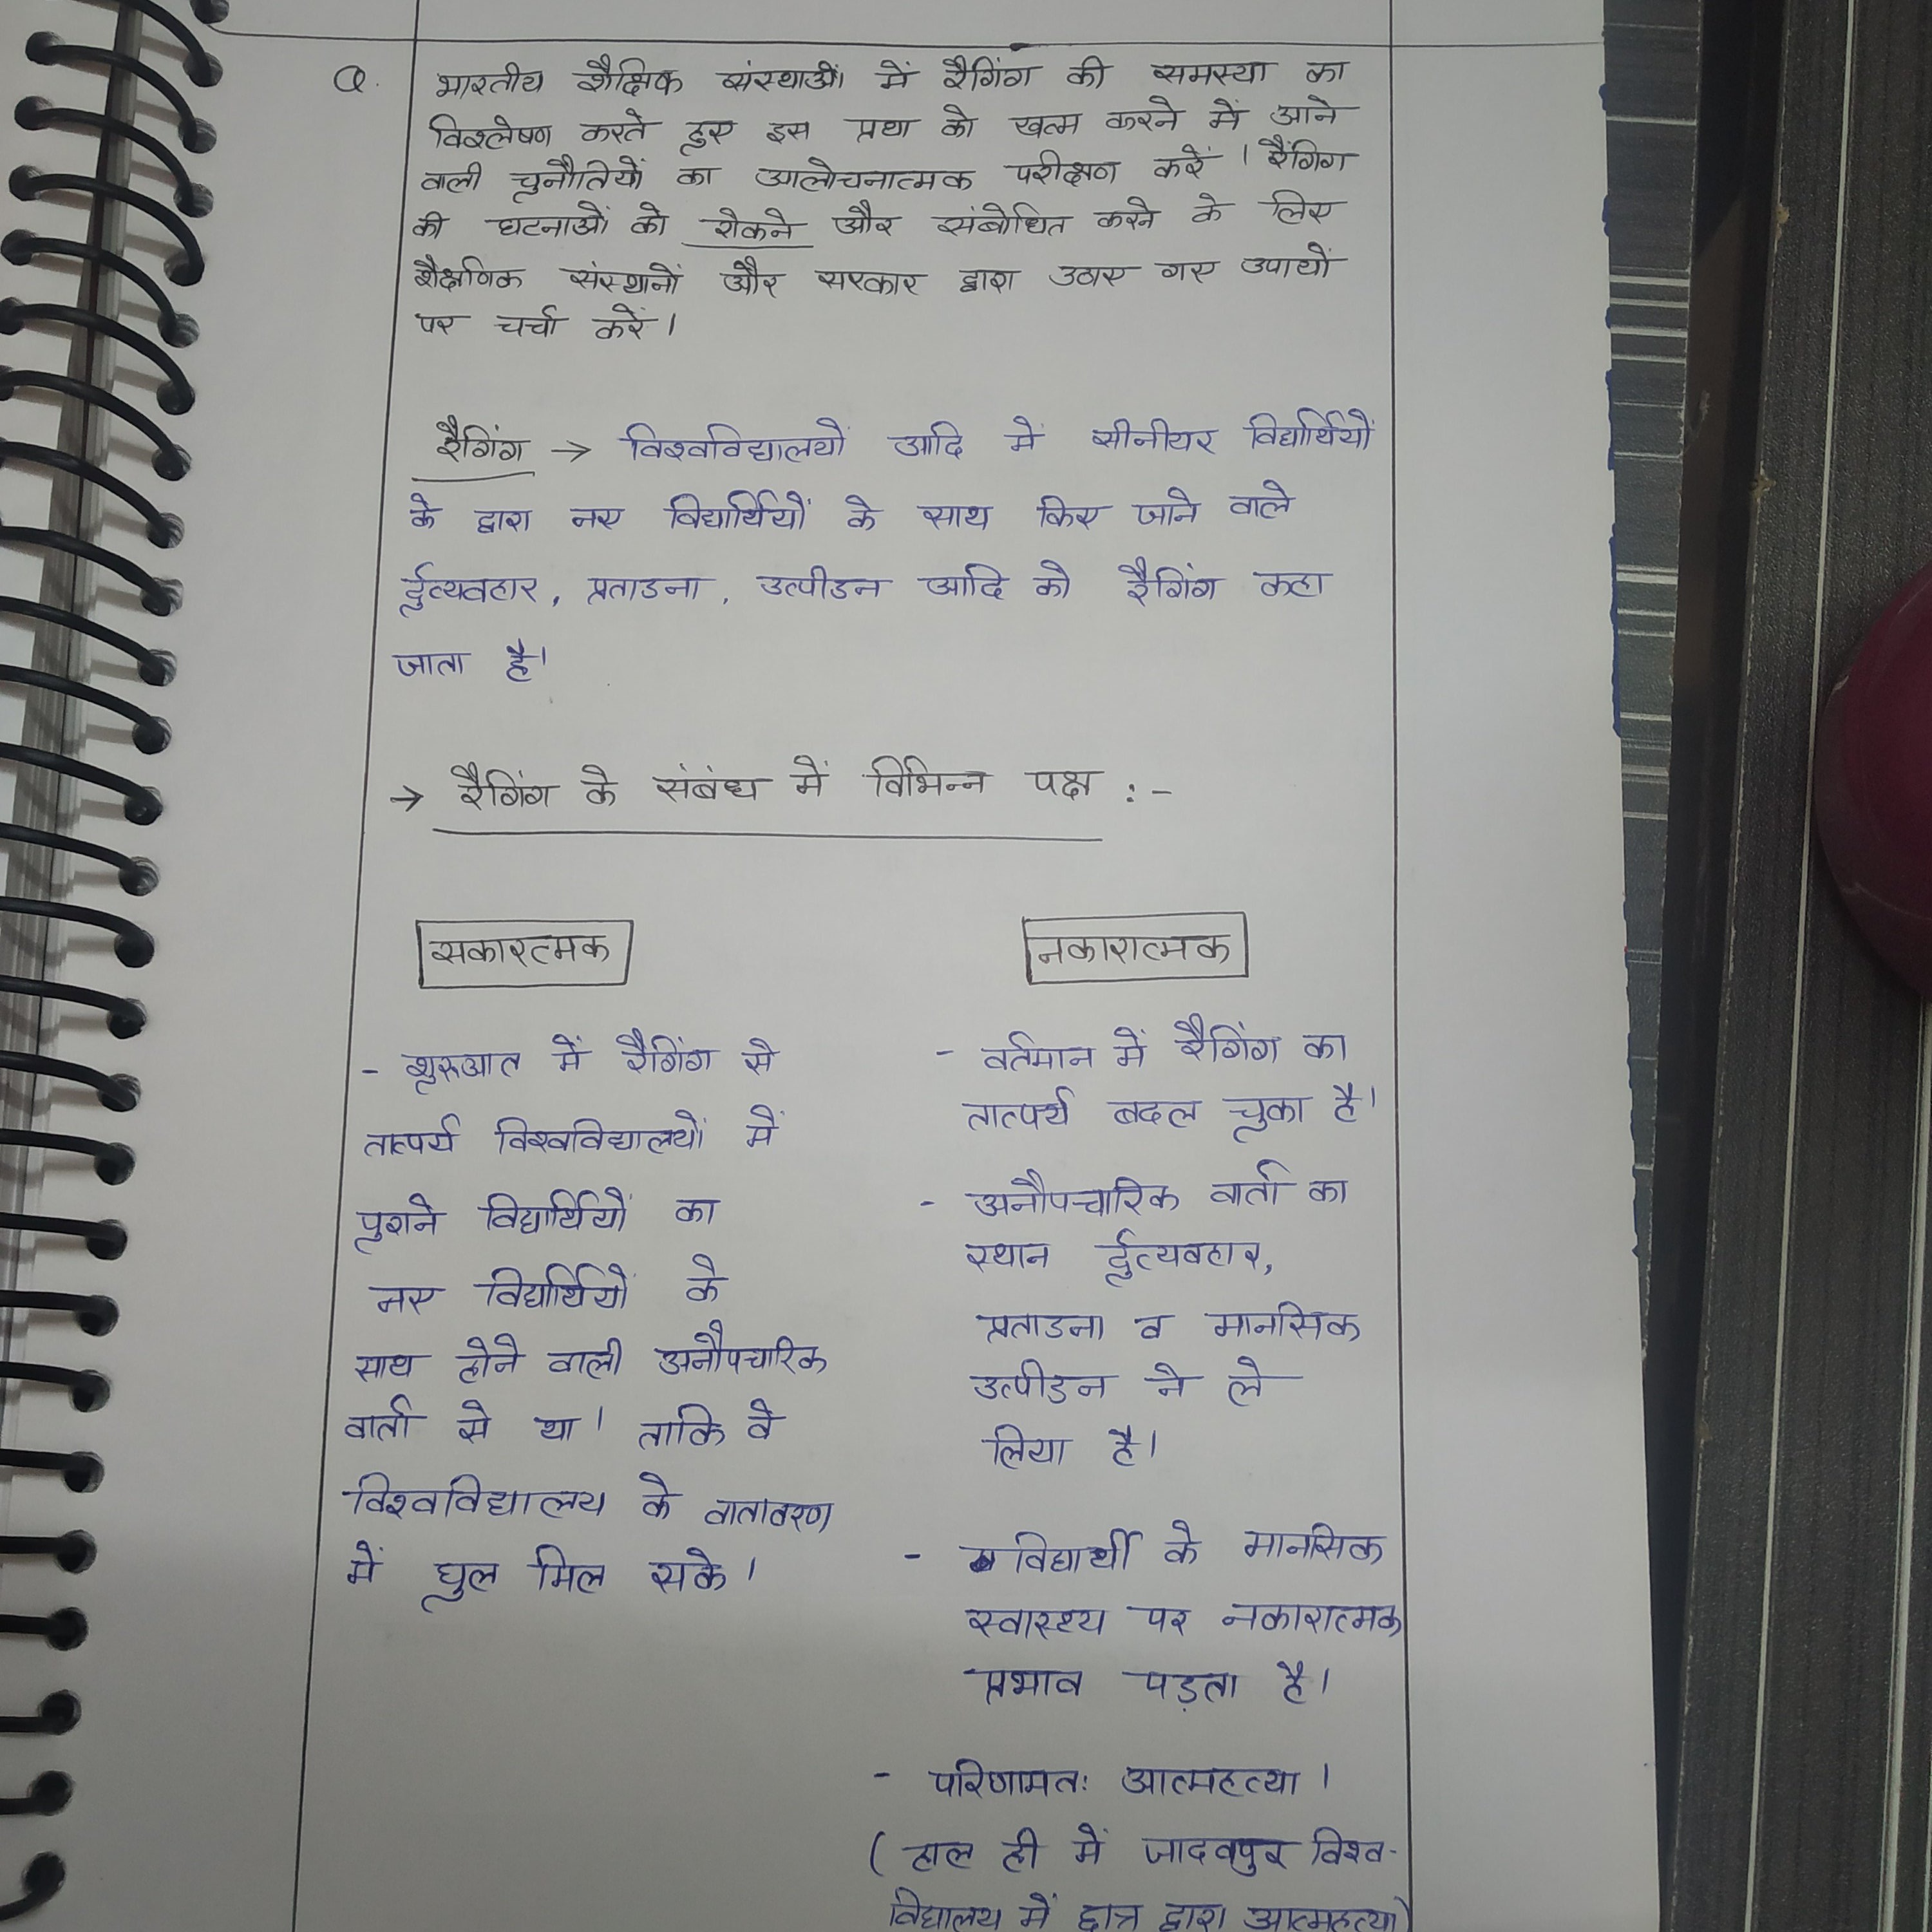 Q. भारतीय शैक्षिक संस्थाओं में रैगिंग की समस्या का
विश्लेषण करते हुए इस प्रथा को खत्म करने में आने
वाली चुनौतियों का आलोचनात्मक परीक्षण करें । रैंगिग
की घटनाओं को रोकने और संबोधित करने के लिए
शैक्षणिक संस्थानों और सरकार द्वारा उठाए गए उपायों
पर चर्चा करें।
रैगिंग → विश्वविद्यालयों आदि में सीनीयर विद्यार्थियों
के द्वारा नए विद्यार्थियों के साथ किए जाने वाले
र्दुव्यवहार, प्रताडना, उत्पीडन आदि को रैगिंग कहा
जाता है।
→ रैगिंग के संबंध में विभिन्न पक्ष :-
सकारत्मक
- शुरुआत में रैगिंग से
तात्पर्य विश्वविद्यालयों में
पुराने विद्यार्थियों का
नए विद्यार्थियों के
साथ होने वाली अनौपचारिक
वार्ता से था। ताकि वे
विश्वविद्यालय के वातावरण
में घुल मिल सके।
नकारात्मक
- वर्तमान में रैगिंग का
तात्पर्य बदल चुका है।
- अनौपचारिक वार्ता का
स्थान र्दुव्यवहार,
प्रताडना व मानसिक
उत्पीडन ने ले
लिया है।
- विद्यार्थी के मानसिक
स्वास्थ्य पर नकारात्मक
प्रभाव पड़ता है।
- परिणामतः आत्महत्या।
( हाल ही में जादवपुर विश्व-
विद्यालय में छात्र द्वारा आत्महत्या)